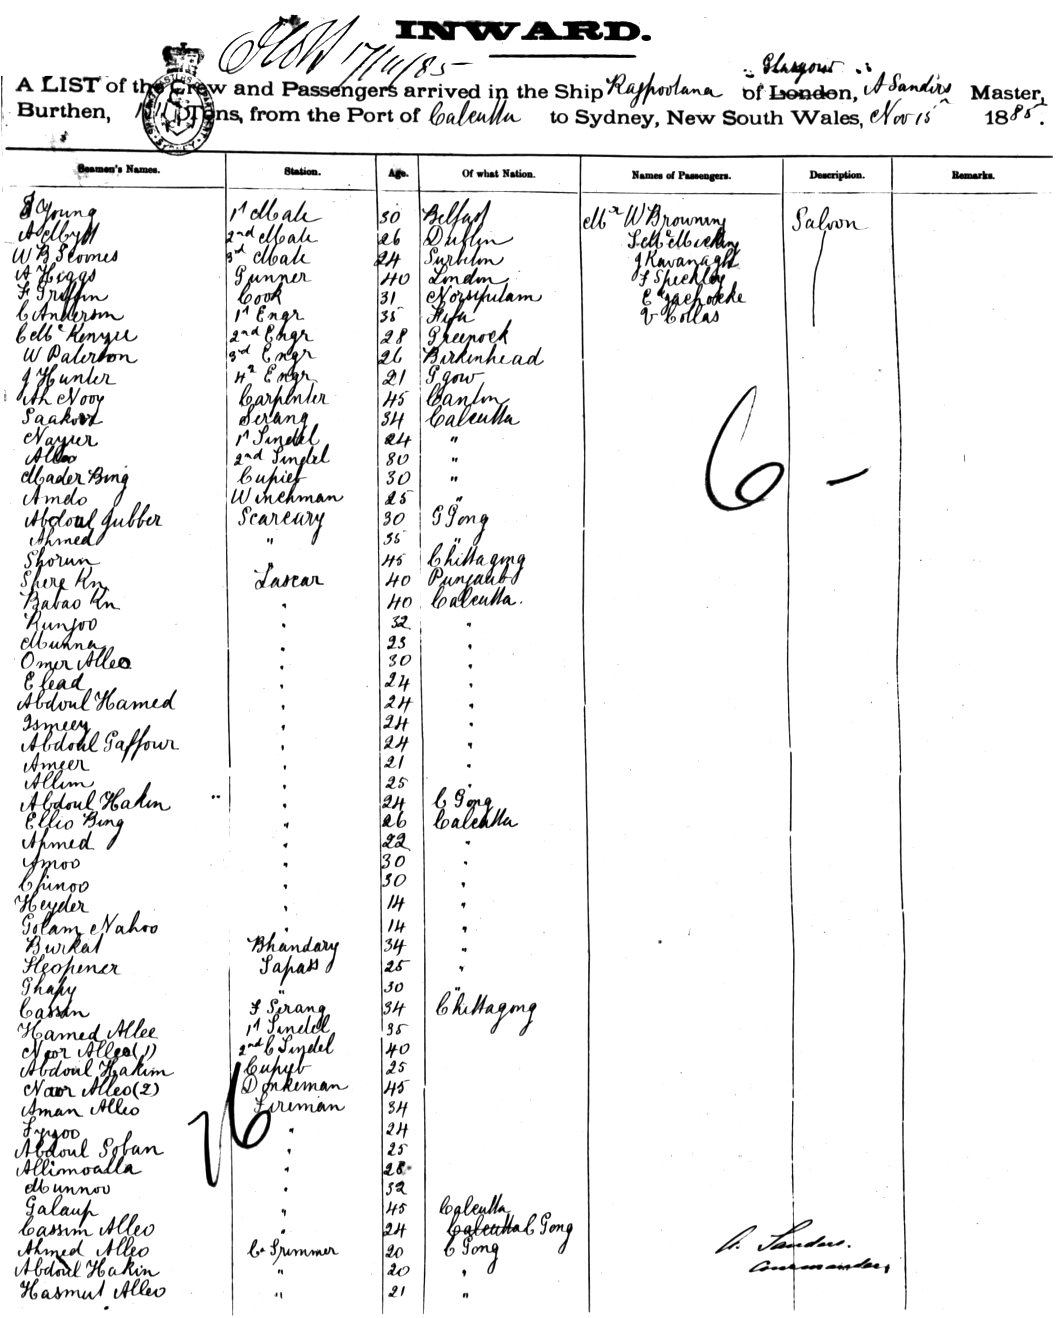 INWARD.
17/11/85
Glasgow
A LIST of the Crew and Passengers arrived in the Ship Rajpootana of London, A Sanders Master,
Burthen, Tons, from the Port of Calcutta to Sydney, New South Wales, Nov 15 1885.
Seamen's Names. Station. Age. Of what Nation. Names of Passengers. Description. Remarks.
Young 1st Mate 30 Belfast Mr W Browning Saloon
2nd Mate 26 Dublin
W B Stoones 3rd Mate 24 Surbiton J Kavanaght
A Higgs Gunner 40 London F Speckley
F Griffin Cook 31 E
C Anderson 1st Engr 35 Fifa V Collas
C Mc Kenzie 2nd Engr 28 Greenock
W Paterson 3rd Engr 26 Birkenhead
J Hunter 4th Engr 21 Ggow
Ah Nooy Carpenter 45 Canton
Serang 34 Calcutta
Nayier 1st Tindel 24 "
Alleo 2nd Tindel 30 "
Mader Bing Cupief 30 "
Amdo Winchman 25 "
Abdoul Jubber Scareury 30 G Gong
Ahmed " 35 "
Shorun 45 Chittagong
Shere Kn Lascar 40 Punjaub
Babao Kn " 40 Calcutta.
Runjoo " 32 "
Munna " 23 "
Omer Alleo " 30 "
Elead " 24 "
Abdoul Hamed " 24 "
Ismeey " 24 "
Abdoul Gaffour " 24 "
Ameer " 21 "
Allim " 25 "
Abdoul Hakin " 24 C Gong
Ellio Bing " 26 Calcutta
Ahmed " 22 "
Amoo " 30 "
Chinoo " 30 "
Heyder " 14 "
Golam Nahoo " 14 "
Burkat Bhandary 34 "
Heopener Tapass 25 "
Ghapy " 30 "
Cassin F Serang 34 Chittagong
Hamed Allee 1st Tindel 35
Noor Alleo (1) 2nd C Tindel 40
Abdoul Hakim Cupif 25
Noor Alleo (2) Donkeman 45
Aman Alleo Fireman 34
Fyzoo " 24
Abdoul Soban " 25
Allimoalla " 28
Munnoo " 32
Galaup " 45 Calcutta
Cassim Alleo " 24 Calcutta C Gong
Ahmed Alleo C Trimmer 20 C Gong
Abdoul Hakin " 20 "
Hasmut Alleo " 21 "
6 -
76
A. Sanders.
Commander.